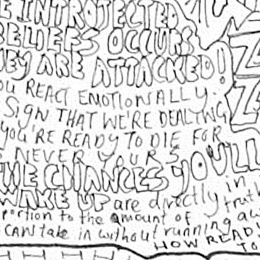 E INTROJECTED
BELIEFS OCCURS
EY ARE ATTACKED!
OU REACT EMOTIONALLY.
SIGN THAT WE'RE DEALING
YOU'RE READY TO DIE FOR
S NEVER YOURS YOU'LL
THE CHANCES
WAKE UP are directly in
portion to the amount of truth
CAN take in without running aw
HOW READY
TO